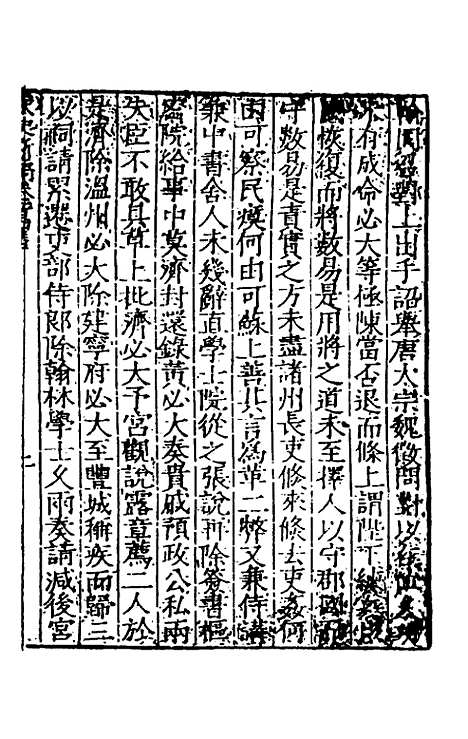 上出手詔舉唐太宗魏徵問對以
有成命必大等極陳當否退而條上謂陛下
恢復而將數易是用將之道未至擇人以守郡國而
守數易是責實之方未盡諸州長吏倏來倏去吏姦何
由可察民瘼何由可蘇上善其言爲革二弊又兼侍講
兼中書舍人未幾辭直學士院從之張說再除簽書樞
密院給事中莫濟封還錄黃必大奏貴戚預政公私兩
失臣不敢具草上批濟必大予宮觀說露章薦二人於
是濟除溫州必大除建寧府必大至豐城稱疾而歸三
以祠請累遷吏部侍郎除翰林學士久雨奏請減後宮